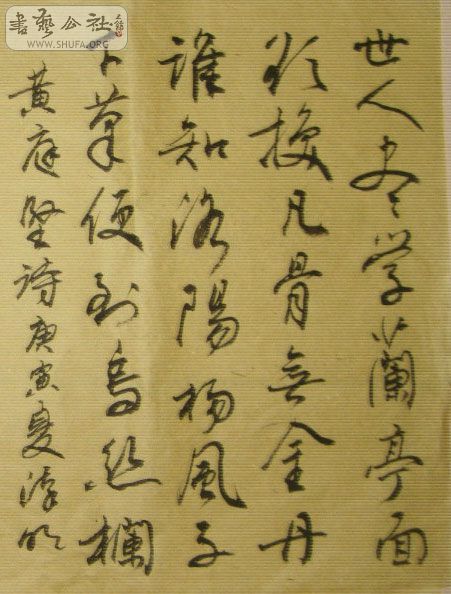 書藝公社
WWW.SHUFA.ORG
世人尽学蘭亭面
欲換凡骨無金丹
誰知洛陽楊風子
下筆便到烏絲欄
黄庭堅詩庚寅夏